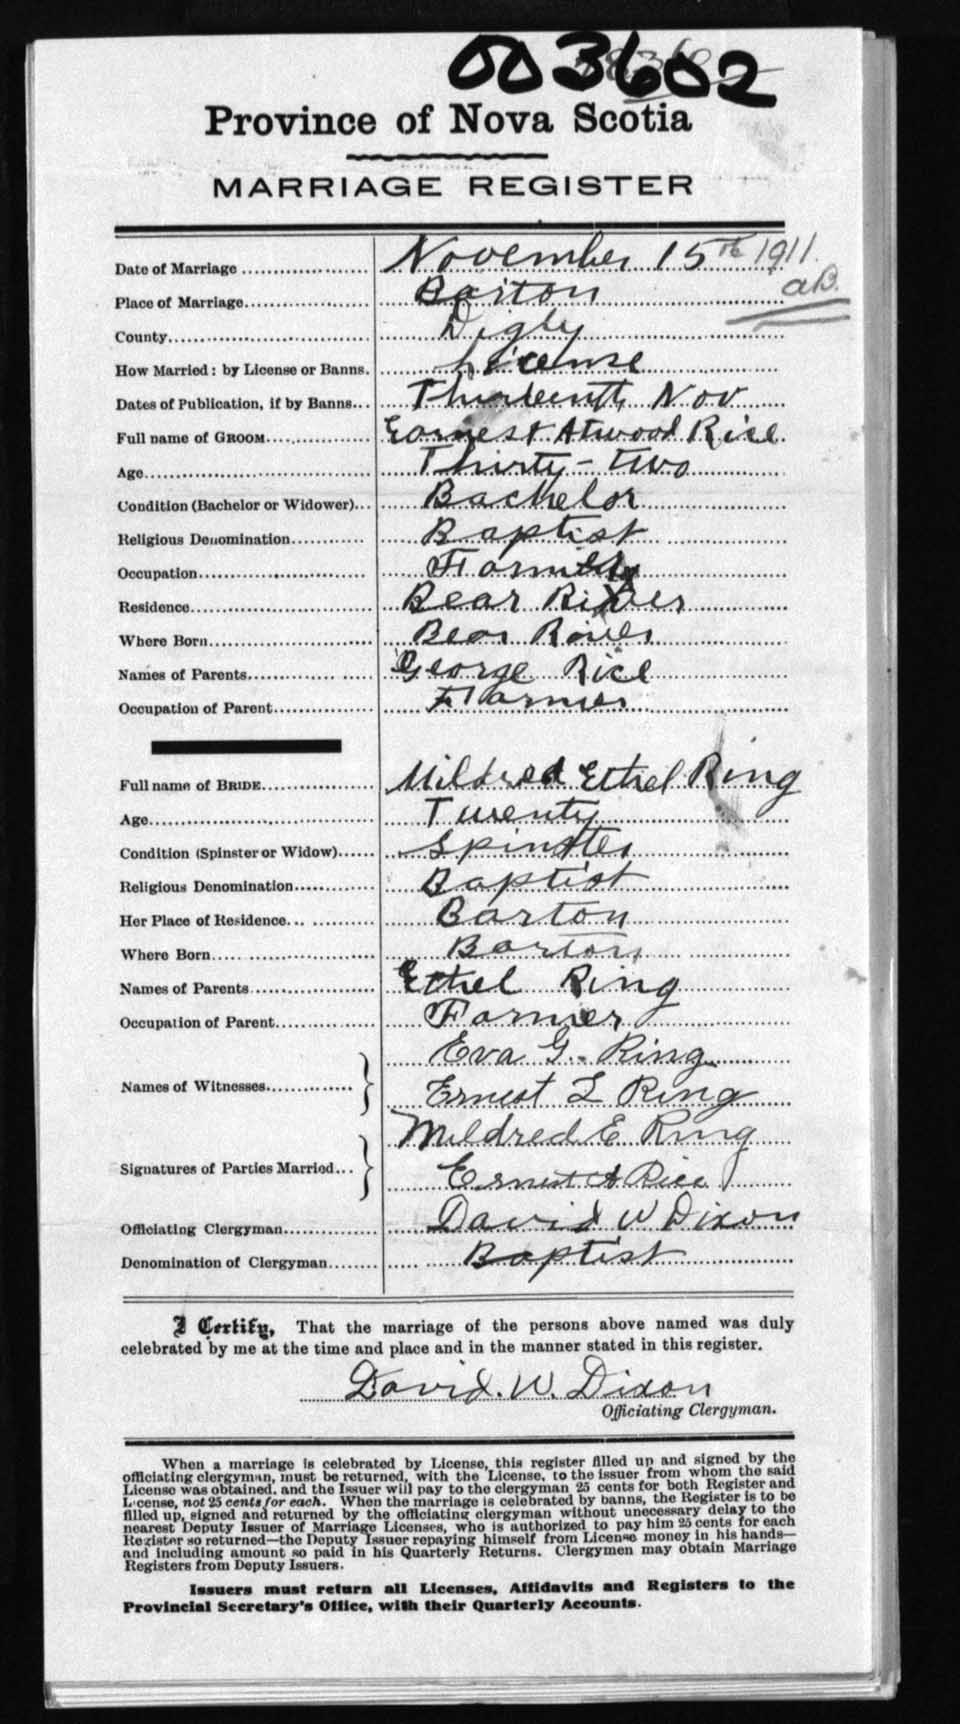 003602
Province of Nova Scotia
MARRIAGE REGISTER
Date of Marriage November 15th 1911.
aB.
Place of Marriage Barton
County Digby
How Married: by License or Banns. License
Dates of Publication, if by Banns Thirteenth Nov
Full name of GROOM Earnest Atwood Rice
Age Thirty-two
Condition (Bachelor or Widower) Bachelor
Religious Denomination Baptist
Occupation
Residence Bear River
Where Born Bear River
Names of Parents George Rice
Occupation of Parent Farmer
Full name of BRIDE Mildred Ethel Ring
Age Twenty
Condition (Spinster or Widow) Spinster
Religious Denomination Baptist
Her Place of Residence Barton
Where Born Barton
Names of Parents Ethel Ring
Occupation of Parent Farmer
Names of Witnesses Eva G. Ring
Ernest L Ring
Signatures of Parties Married Mildred E Ring
Ernest A Rice
Officiating Clergyman David W Dixon
Denomination of Clergyman Baptist
I Certify, That the marriage of the persons above named was duly
celebrated by me at the time and place and in the manner stated in this register.
David. W. Dixon
Officiating Clergyman.
When a marriage is celebrated by License, this register filled up and signed by the
officiating clergyman, must be returned, with the License, to the issuer from whom the said
License was obtained, and the Issuer will pay to the clergyman 25 cents for both Register and
License, not 25 cents for each. When the marriage is celebrated by banns, the Register is to be
filled up, signed and returned by the officiating clergyman without unnecessary delay to the
nearest Deputy Issuer of Marriage Licenses, who is authorized to pay him 25 cents for each
Register so returned—the Deputy Issuer repaying himself from License money in his hands—
and including amount so paid in his Quarterly Returns. Clergymen may obtain Marriage
Registers from Deputy Issuers.
Issuers must return all Licenses, Affidavits and Registers to the
Provincial Secretary's Office, with their Quarterly Accounts.